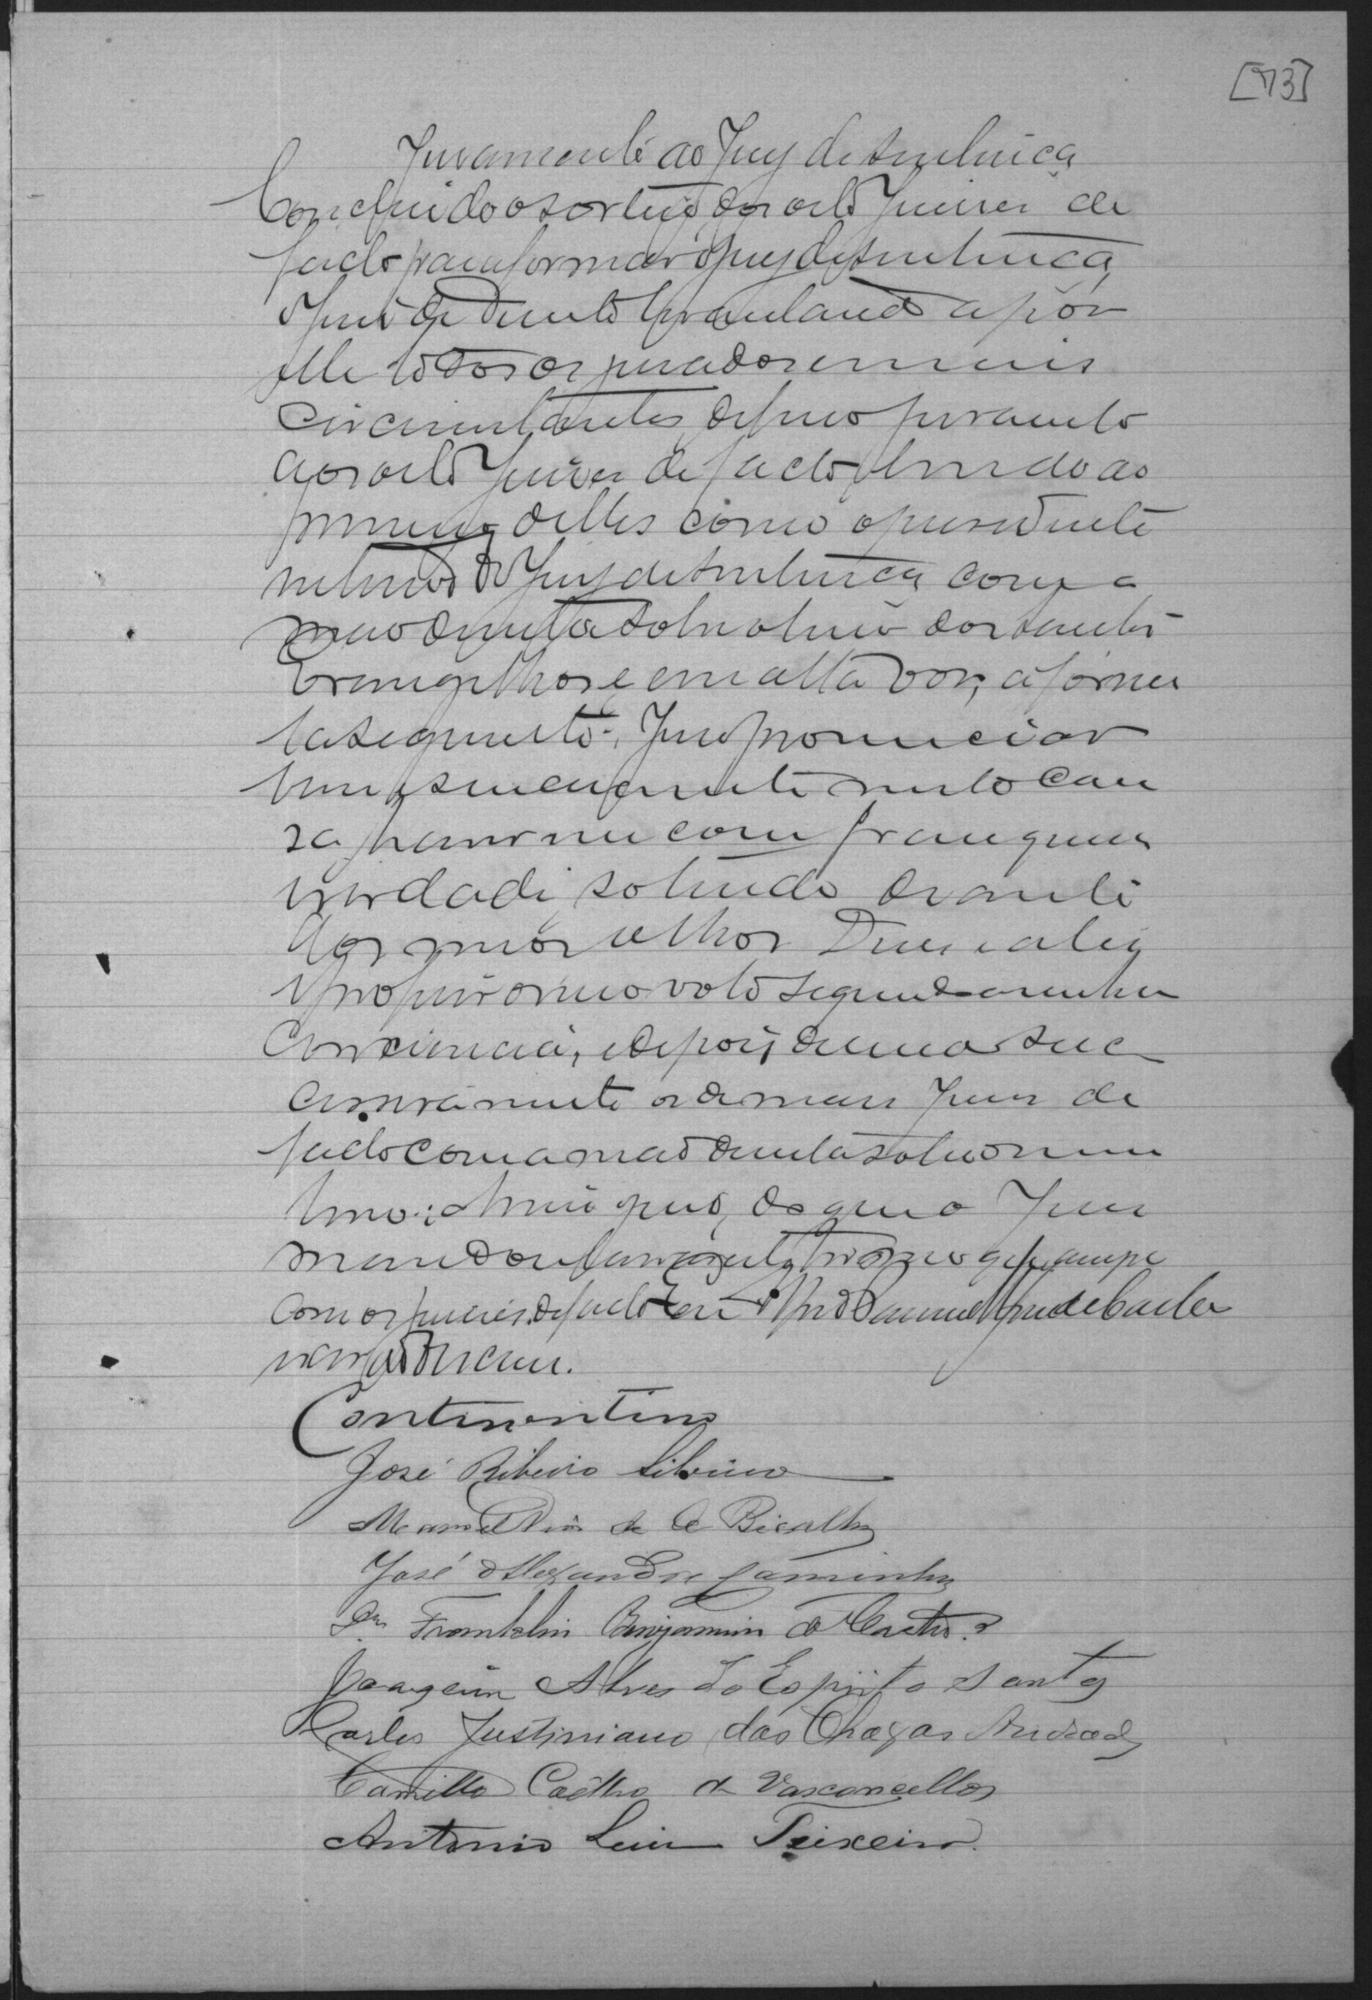 [73]
Juramento ao Jury de Sentença
Concluido o sorteio dos oito Juizes de
facto para formar o jury de sentença
o Juiz de Direito levantando e após
elle todos os jurados e mais
circunstantes deferio juramento
aos oito Juizes de facto, lendo ao
primeiro delles como o presidente
interino do Jury de Sentença com a
mão direita sobre o livro dos Santos
Evangelhos e em alta voz, a formu
la seguinte: Juro pronunciar
bem e sinceramente nesta cau
sa haver me com franqueza e
verdade, só tendo diante
dos meus olhos Deus e a lei
e proferir o meu voto segundo a minha
consciencia, e depois disse suc
cessivamente os demais Juizes de
facto com a mão direita sobre o mesmo
livro: Assim juro, do que o Juiz
mandou lavrar este termo que assigna
com os juizes de facto. Eu José de
escrivão o escrevi.
Continentino
José Ribeiro Silvino
Manoel Dias de Bicalho
José Alexandre Caminha
Dr. Franklin Benjamin de Castro
Joaquim Alves do Espirito Santo
Carlos Justiniano das Chagas Andrade
Camillo Coêlho de Vasconcellos
Antonio Luiz Teixeira.